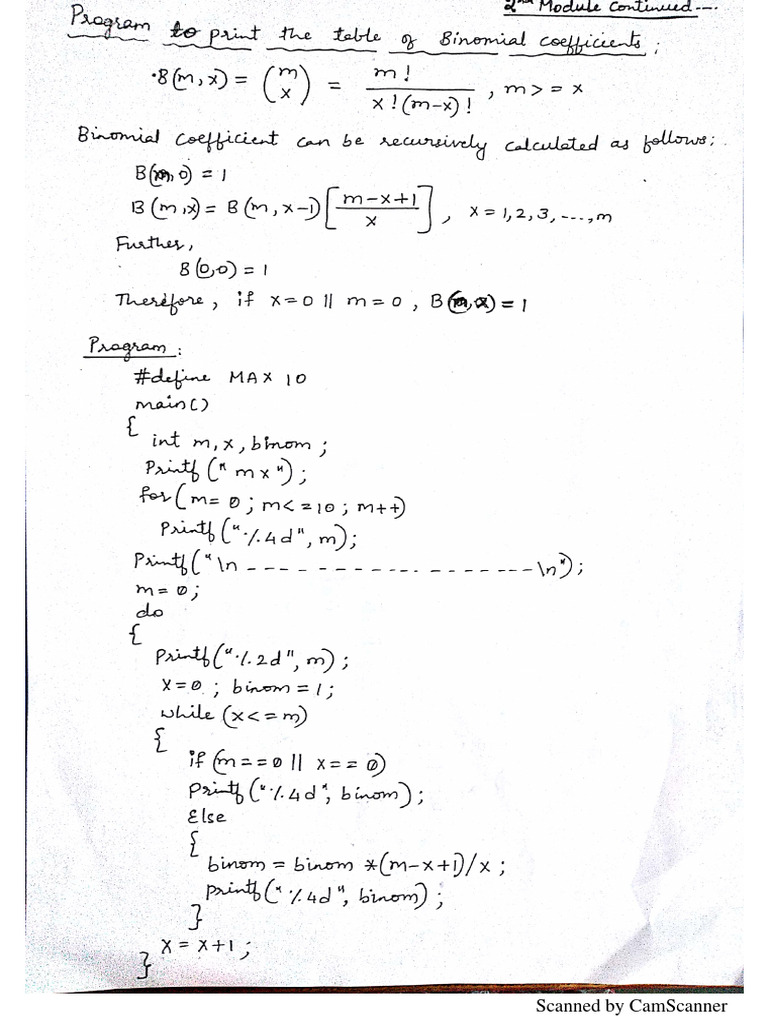 2nd Module Continued ---.
Program to print the table of Binomial coefficients;
B(m,x) = (m x) = m! / x!(m-x)! , m>=x
Binomial coefficient can be recursively calculated as follows:
B(m,0) = 1
B(m,x) = B(m,x-1) [m-x+1 / x], x=1,2,3,...,m
Further,
B(0,0) = 1
Therefore, if x=0 || m=0, B(m,x) = 1
Program:
#define MAX 10
main()
{
int m,x,binom;
Printf("mx");
for(m=0; m<=10; m++)
Printf("%4d", m);
Printf("\n-------------------\n");
m=0;
do
{
Printf("%2d", m);
x=0; binom=1;
while (x<=m)
{
if (m==0 || x==0)
Printf("%4d", binom);
Else
{
binom = binom *(m-x+1)/x;
Printf("%4d", binom);
}
x = x+1;
}
Scanned by CamScanner